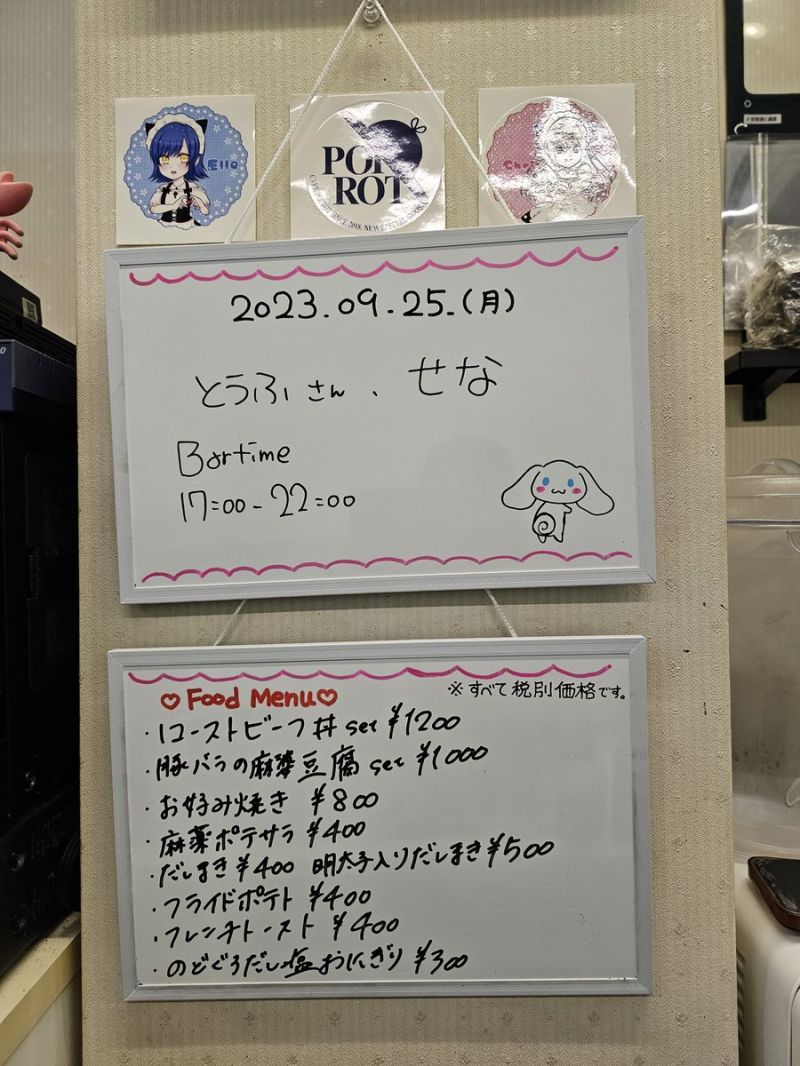 Ello
PON
ROT
SINCE 2018. NEW SPECIAL
2023.09.25.(月)
とうふさん、せな
Bartime
17:00-22:00
♡Food Menu♡
※すべて税別価格です。
・ローストビーフ丼 set ¥1200
・豚バラの麻婆豆腐 set ¥1000
・お好み焼き ¥800
・麻薬ポテサラ ¥400
・だしまき ¥400 明太子入りだしまき ¥500
・フライドポテト ¥400
・フレンチトースト ¥400
・のどぐろだし塩おにぎり ¥300